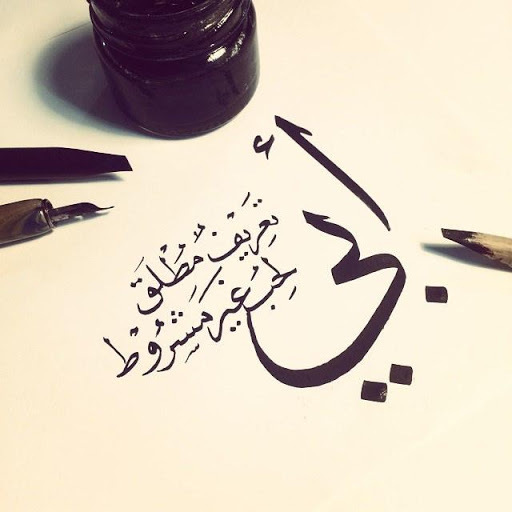 أبي
تعريف مُطْلَق
لحُبِّ غير مَشرُوط